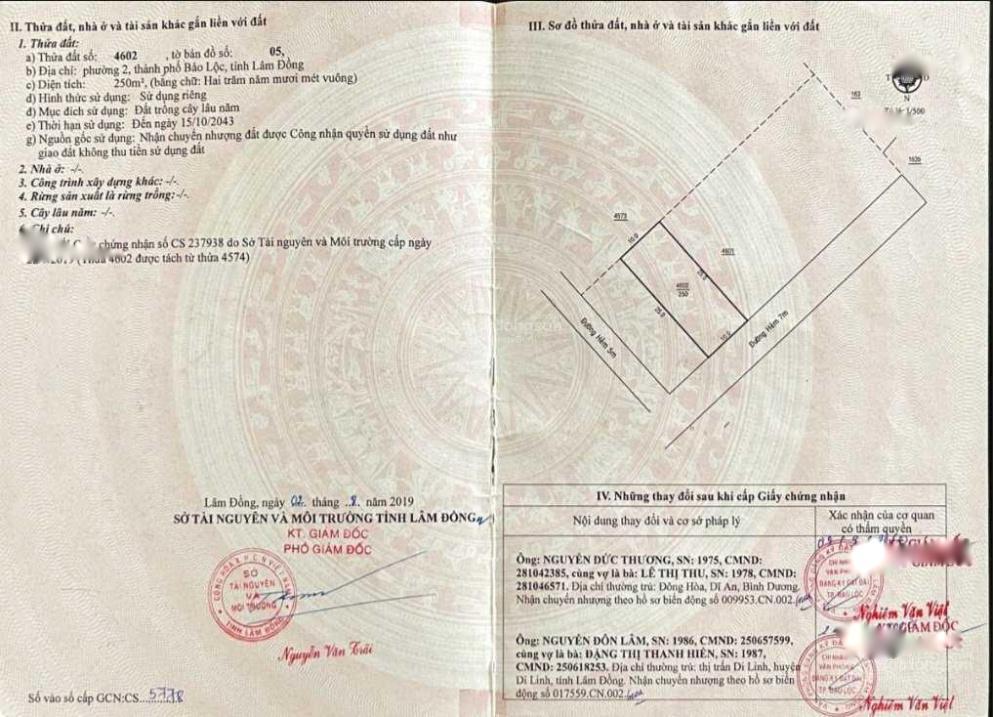 II. Thửa đất, nhà ở và tài sản khác gắn liền với đất
1. Thửa đất:
a) Thửa đất số: 4602 , tờ bản đồ số: 05,
b) Địa chỉ: phường 2, thành phố Bảo Lộc, tỉnh Lâm Đồng
c) Diện tích: 250m², (bằng chữ: Hai trăm năm mươi mét vuông)
d) Hình thức sử dụng: Sử dụng riêng
đ) Mục đích sử dụng: Đất trồng cây lâu năm
e) Thời hạn sử dụng: Đến ngày 15/10/2043
g) Nguồn gốc sử dụng: Nhận chuyển nhượng đất được Công nhận quyền sử dụng đất như
giao đất không thu tiền sử dụng đất
2. Nhà ở: -/-.
3. Công trình xây dựng khác: -/-.
4. Rừng sản xuất là rừng trồng: -/-.
5. Cây lâu năm: -/-.
Ghi chú:
chứng nhận số CS 237938 do Sở Tài nguyên và Môi trường cấp ngày
4602 được tách từ thửa 4574)
Lâm Đồng, ngày 02 tháng 8 năm 2019
SỞ TÀI NGUYÊN VÀ MÔI TRƯỜNG TỈNH LÂM ĐỒNG
KT. GIÁM ĐỐC
PHÓ GIÁM ĐỐC
SỞ
TÀI NGUYÊN
VÀ
MÔI TRƯỜNG
TỈNH LÂM ĐỒNG
Nguyễn Văn Trãi
Số vào sổ cấp GCN:CS....5778
III. Sơ đồ thửa đất, nhà ở và tài sản khác gắn liền với đất
N
1/500
4573
10.0
4601
4602
250
25.0
25.0
10.0
Đường Hẻm 5m
Đường Hẻm 7m
IV. Những thay đổi sau khi cấp Giấy chứng nhận
Nội dung thay đổi và cơ sở pháp lý
Xác nhận của cơ quan
có thẩm quyền
Ông: NGUYỄN ĐỨC THƯƠNG, SN: 1975, CMND:
281042385, cùng vợ là bà: LÊ THỊ THU, SN: 1978, CMND:
281046571. Địa chỉ thường trú: Đông Hòa, Dĩ An, Bình Dương.
Nhận chuyển nhượng theo hồ sơ biến động số 009953.CN.002.
Nghiêm Văn Việt
GIÁM ĐỐC
Ông: NGUYỄN ĐÔN LÂM, SN: 1986, CMND: 250657599,
cùng vợ là bà: ĐẶNG THỊ THANH HIÊN, SN: 1987,
CMND: 250618253. Địa chỉ thường trú: thị trấn Di Linh, huyện
Di Linh, tỉnh Lâm Đồng. Nhận chuyển nhượng theo hồ sơ biến
động số 017559.CN.002.
CHI NHÁNH
VĂN PHÒNG
ĐĂNG KÝ ĐẤT ĐAI
TP. BẢO LỘC
Nghiêm Văn Việt